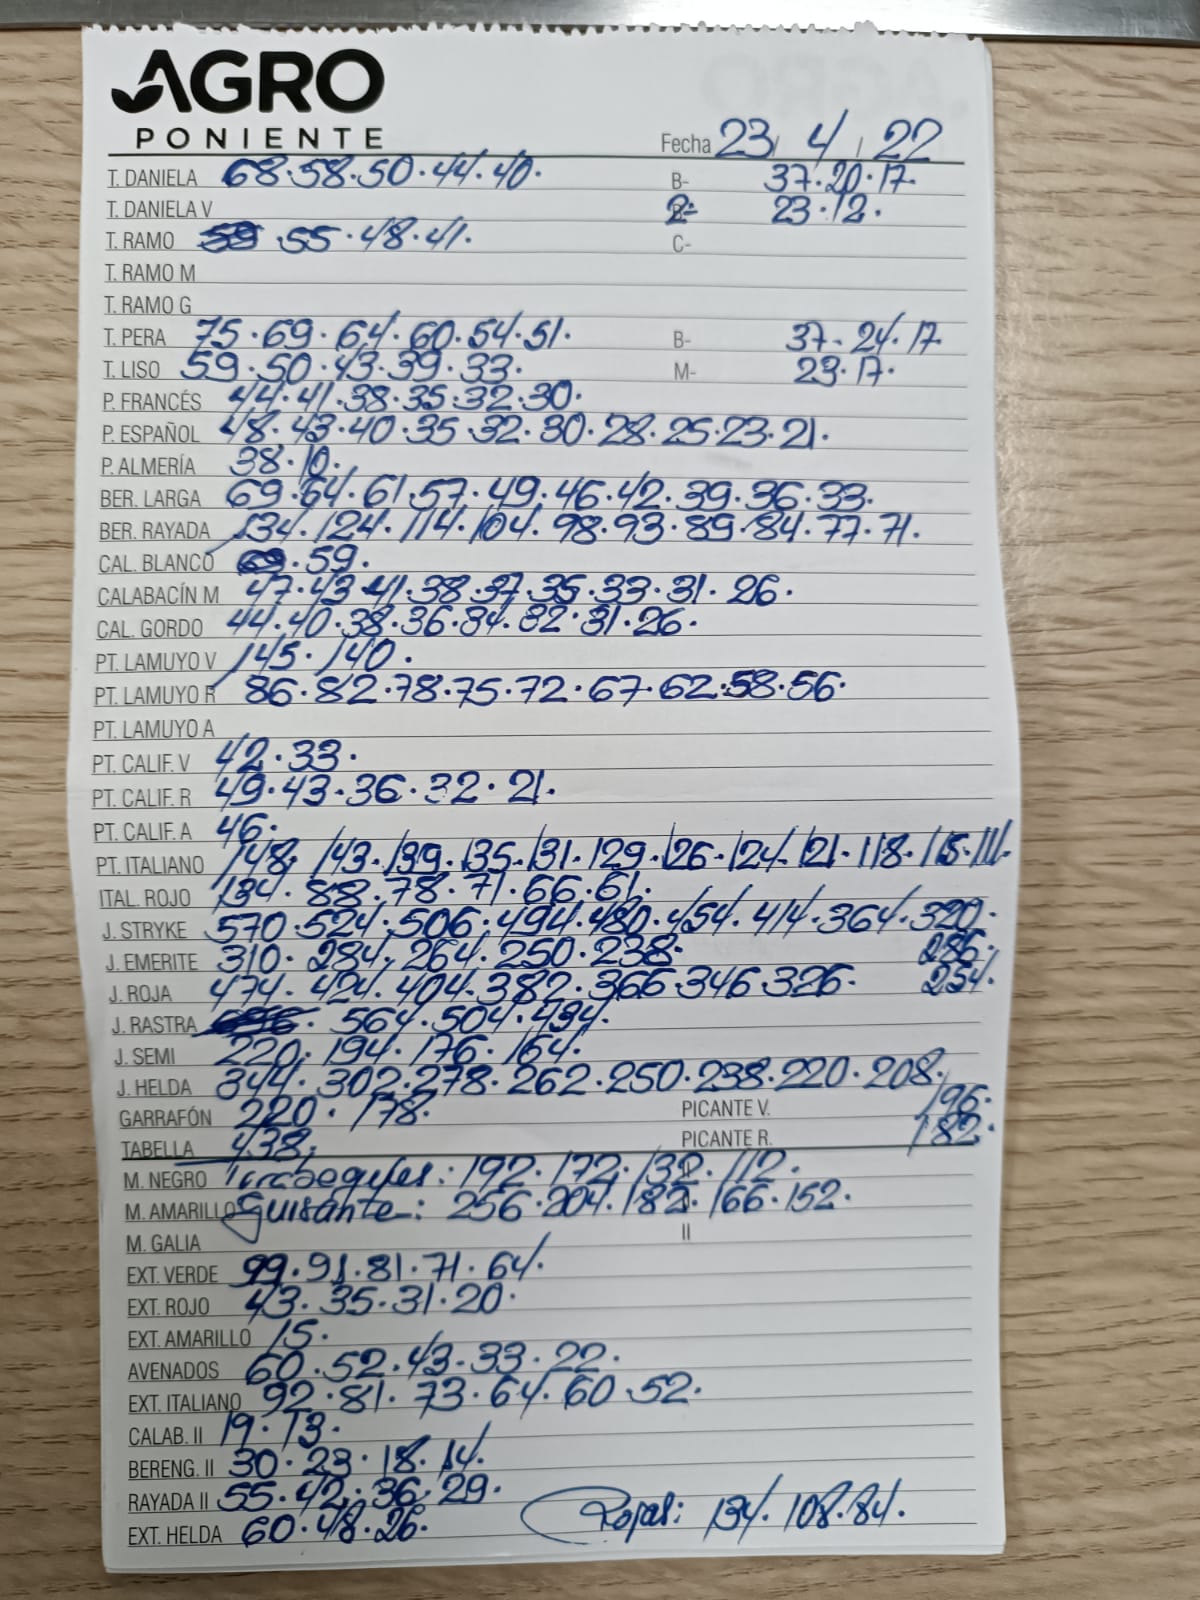 AGRO
PONIENTE
Fecha 23/ 4 / 22
T. DANIELA 68·58·50·44·40· B- 37·20·17·
T. DANIELA V 2- 23·12·
T. RAMO 59 55·48·41· C-
T. RAMO M
T. RAMO G
T. PERA 75·69·64·60·54·51· B- 37·24·17·
T. LISO 59·50·43·39·33· M- 23·17·
P. FRANCÉS 44·41·38·35·32·30·
P. ESPAÑOL 48·43·40·35·32·30·28·25·23·21·
P. ALMERÍA 38·10·
BER. LARGA 69·64·61·57·49·46·42·39·36·33·
BER. RAYADA 134·124·114·104·98·93·89·84·77·71·
CAL. BLANCO 69·59·
CALABACÍN M 47·43·41·38·37·35·33·31·26·
CAL. GORDO 44·40·38·36·34·32·31·26·
PT. LAMUYO V 145·140·
PT. LAMUYO R 86·82·78·75·72·67·62·58·56·
PT. LAMUYO A
PT. CALIF. V 42·33·
PT. CALIF. R 49·43·36·32·21·
PT. CALIF. A 46·
PT. ITALIANO 148·143·139·135·131·129·126·124·121·118·115·111·
ITAL. ROJO 134·88·78·71·66·61·
J. STRYKE 570·524·506·494·480·454·414·364·320·
J. EMERITE 310·284·264·250·238· 286·
J. ROJA 474·424·404·382·366·346·326· 254·
J. RASTRA 564·504·434·
J. SEMI 220·194·176·164·
J. HELDA 344·302·278·262·250·238·220·208·
GARRAFÓN 220·178· PICANTE V. 196·
TABELLA 438· PICANTE R. 182·
M. NEGRO 192·172·132·112·
M. AMARILLO Guisante-: 256·204·182·166·152·
M. GALIA II
EXT. VERDE 99·91·81·71·64·
EXT. ROJO 43·35·31·20·
EXT. AMARILLO 15·
AVENADOS 60·52·43·33·22·
EXT. ITALIANO 92·81·73·64·60·52·
CALAB. II 19·13·
BERENG. II 30·23·18·14·
RAYADA II 55·42·36·29·
EXT. HELDA 60·48·26· Rojas: 134·108·84·